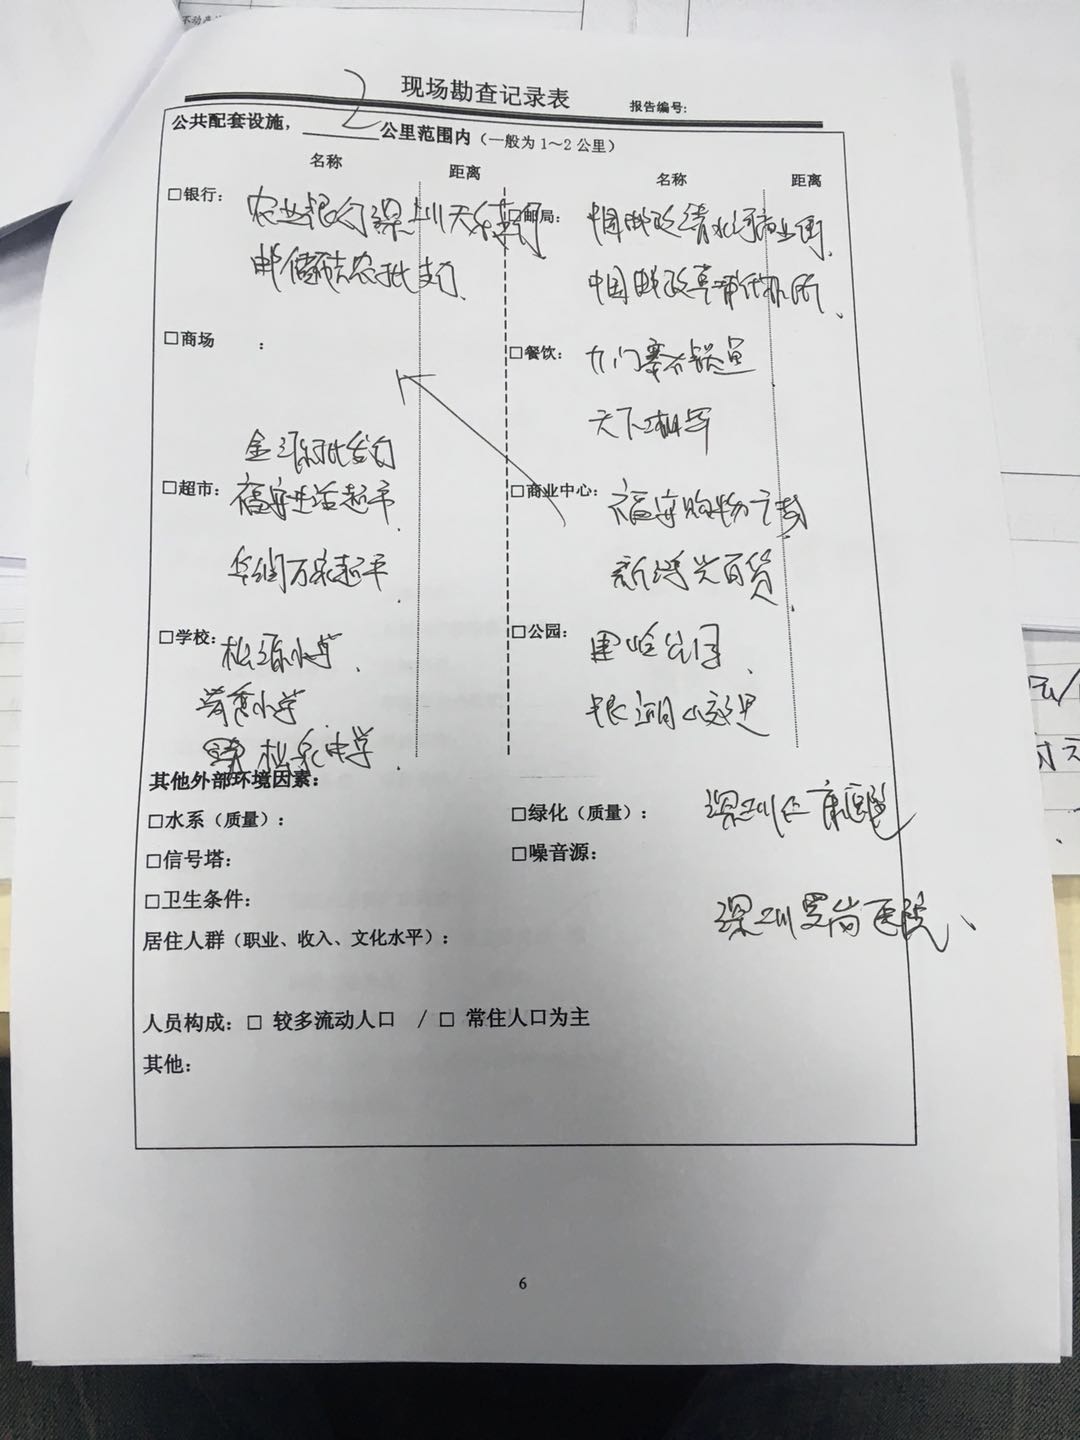 不动产
现场勘查记录表
报告编号:
公共配套设施, 2 公里范围内（一般为1～2公里）
名称 距离 名称 距离
□银行: 农业银行深圳天乐支行 邮局: 中国邮政清水河营业厅
邮储 农批支行 中国邮政草埔代办所
□商场 :
□餐饮:
天下
金源批发行
□超市: 福安生活超市 □商业中心: 福安购物广场
华润万家超市 百货
□学校: 松源小学 □公园: 围岭公园
小学 银湖山郊
松泉中学
其他外部环境因素:
□水系（质量）: □绿化（质量）: 深圳仁康医院
□信号塔: □噪音源:
□卫生条件:
深圳罗岗医院、
居住人群（职业、收入、文化水平）:
人员构成: □ 较多流动人口 / □ 常住人口为主
其他:
6